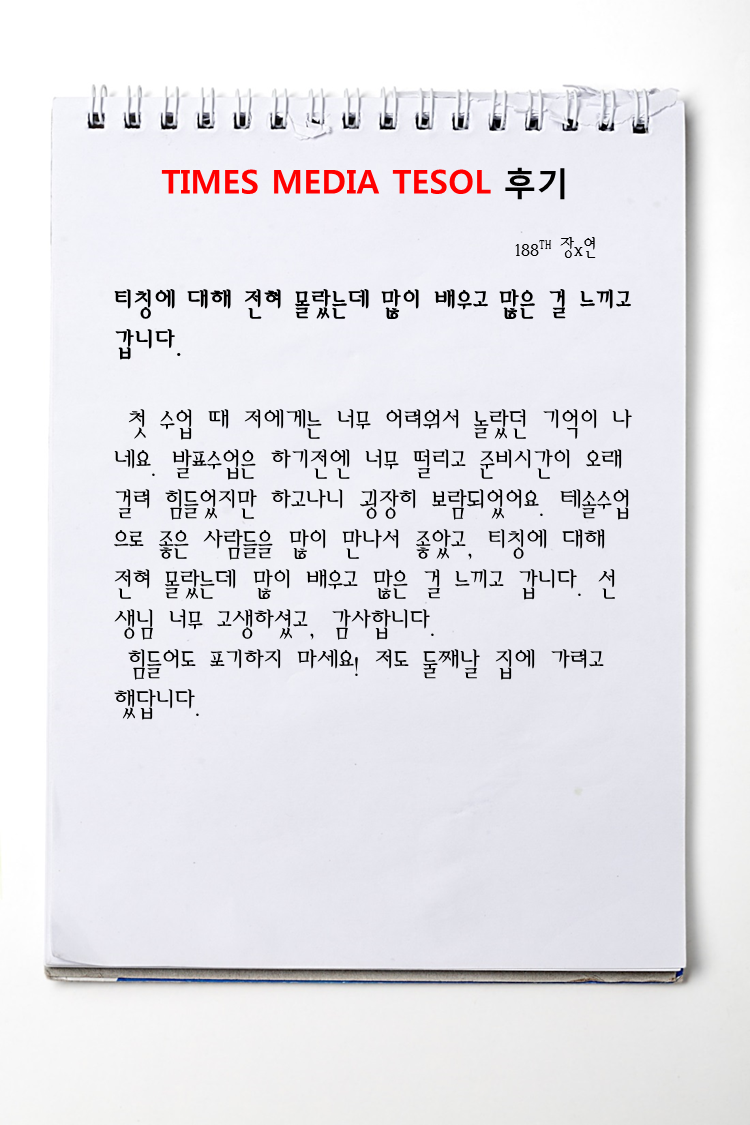 TIMES MEDIA TESOL 후기
188TH 장x연
티칭에 대해 전혀 몰랐는데 많이 배우고 많은 걸 느끼고
갑니다.
첫 수업 때 저에게는 너무 어려워서 놀랐던 기억이 나
네요. 발표수업은 하기전엔 너무 떨리고 준비시간이 오래
걸려 힘들었지만 하고나니 굉장히 보람되었어요. 테솔수업
으로 좋은 사람들을 많이 만나서 좋았고, 티칭에 대해
전혀 몰랐는데 많이 배우고 많은 걸 느끼고 갑니다. 선
생님 너무 고생하셨고, 감사합니다.
힘들어도 포기하지 마세요! 저도 둘째날 집에 가려고
했답니다.